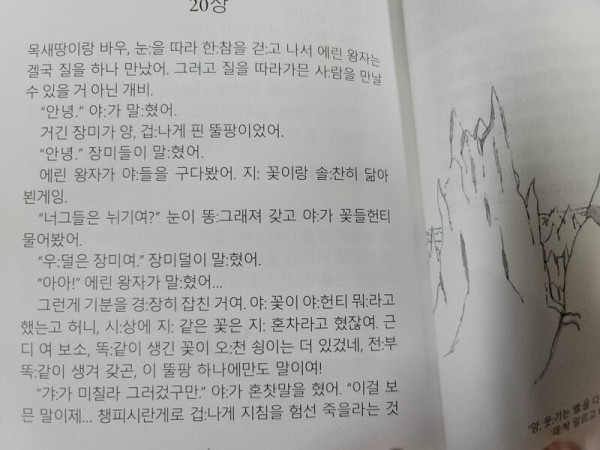 20장
목새땅이랑 바우, 눈:을 따라 한:참을 걷:고 나서 에린 왕자는
겔국 질을 하나 만났어. 그러고 질을 따라가믄 사:람을 만날
수 있을 거 아닌 개비.
“안녕.” 야:가 말:혔어.
거긴 장미가 양, 겁:나게 핀 뚤팡이었어.
“안녕.” 장미들이 말:혔어.
에린 왕자가 야:들을 구다봤어. 지: 꽃이랑 솔:찬히 닮아
뵌게잉.
“너그들은 뉘기여?” 눈이 똥:그래져 갖고 야:가 꽃들헌티
물어봤어.
“우:덜은 장미여.” 장미덜이 말:혔어.
“아아!” 에린 왕자가 말:혔어...
그런게 기분을 경:장히 잡친 거여. 야: 꽃이 야:헌티 뭐:라고
했는고 허니, 시:상에 지: 같은 꽃은 지: 혼차라고 혔잖여. 근
디 여 보소, 똑:같이 생긴 꽃이 오:천 싕이는 더 있겄네, 전:부
똑:같이 생겨 갖곤, 이 뚤팡 하나에만도 말이여!
“갸:가 미칠라 그러겄구만.” 야:가 혼찻말을 혔어. “이걸 보
믄 말이제... 챙피시란게로 겁:나게 지침을 험선 죽을라는 것
“양, 웃:기는 별:을 다